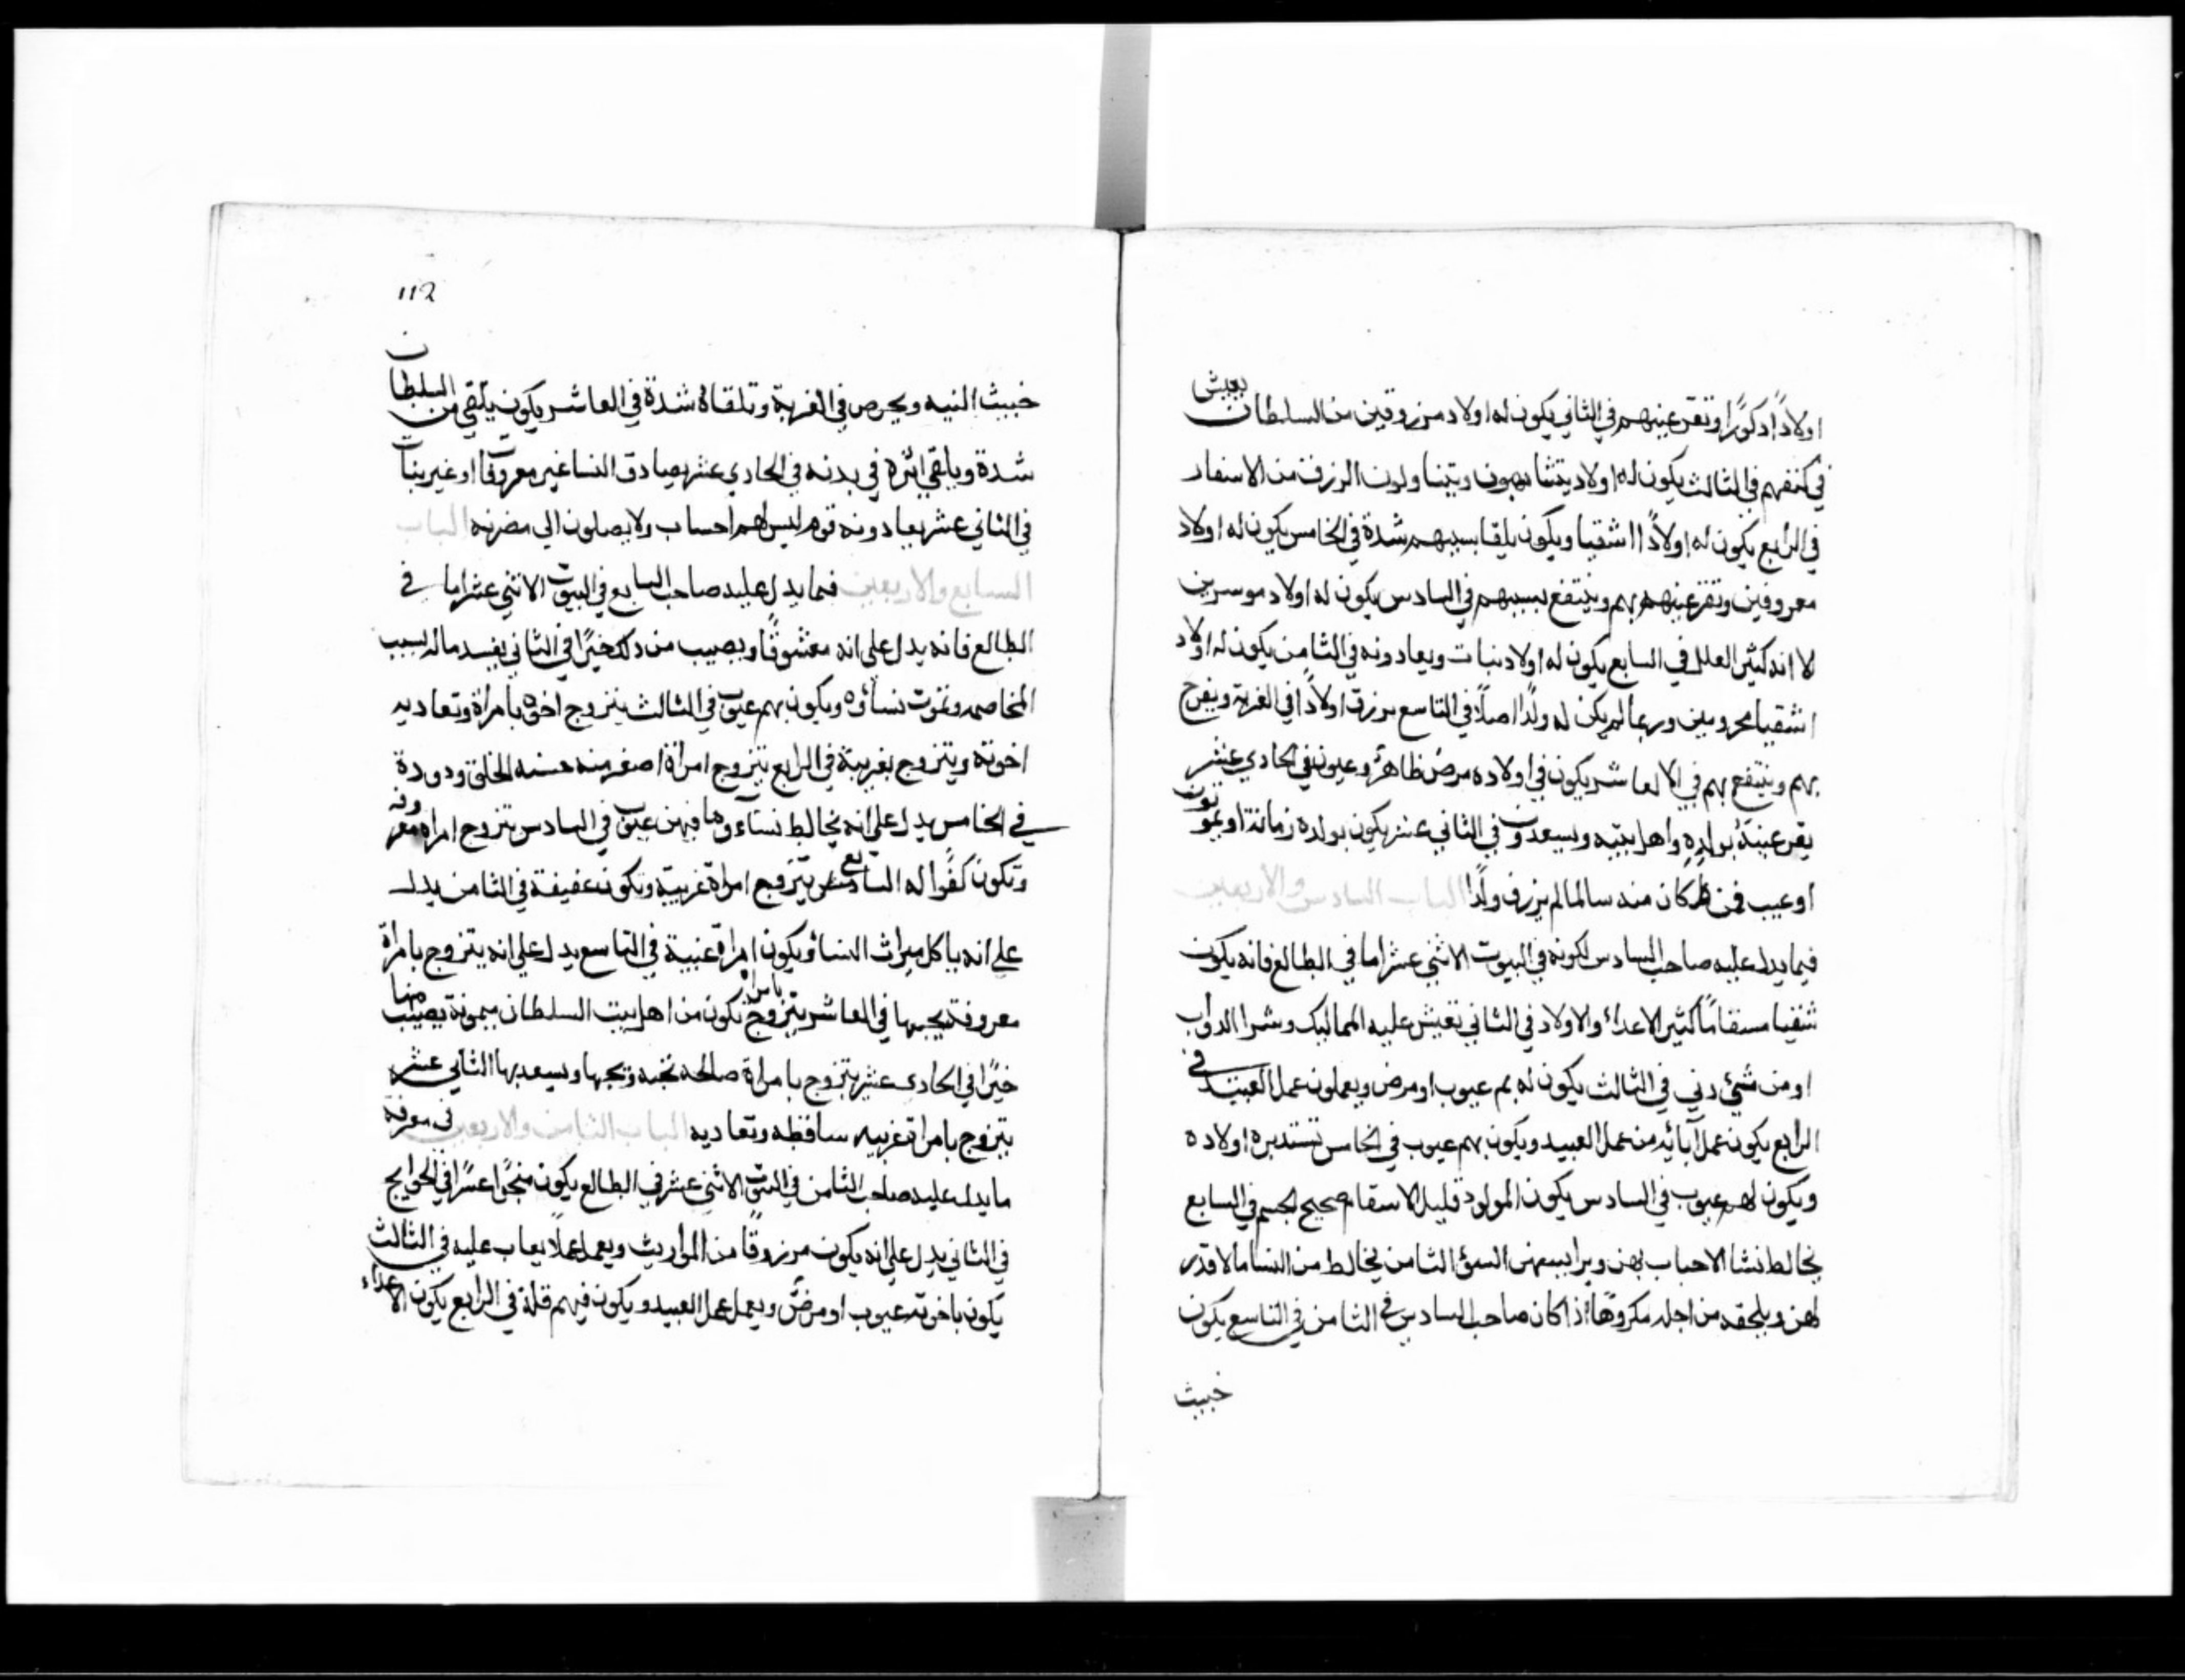 اولاداً ذكوراً وتقر عينهم في الثاني يكون له اولاد مرزوقين من السلطان يعيش
في كنفهم في الثالث يكون له اولاد يتشابهون ويتناولون الرزق من الاسفار
في الرابع يكون له اولاداً اشقيا ويكون يلقا بسببهم شدة في الخامس يكون له اولاد
معروفين وتقر عينهم بهم وينتفع بسببهم في السادس يكون له اولاد موسرين
لا انه كثير العلل في السابع يكون له اولاد بنات ويعادونه في الثامن يكون له اولاد
اشقيا محرومين وربما لم يكن له ولداً اصلاً في التاسع يرزق اولاداً في الغربة ويفرح
بهم وينتفع بهم في العاشر يكون في اولاده مرض ظاهر وعيوب في الحادي عشر
يقر عينه بولده واهل بيته ويسعدون في الثاني عشر يكون بولده زمانة او يموتون
او عيب فمن كان منه سالما لم يرزق ولداً الباب السادس والاربعين
فيما يدل عليه صاحب السادس لكونه في البيوت الاثني عشر اما في الطالع فانه يكون
شقيا مسقاماً كثير الاعداء والاولاد في الثاني تعيش عليه المماليك وشرا الدواب
او من شئ دني في الثالث يكون له بهم عيوب او مرض ويعملون عمل العبيد في
الرابع يكون عمل آبائه من عمل العبيد ويكون بهم عيوب في الخامس تستدبره اولاده
ويكون لهم عيوب في السادس يكون المولود قليل الاسقام صحيح الجسم في السابع
يخالط نسا الاحباب بهن السؤ الثامن يخالط من النسا ما لا قدر
لهن ويلحقه من اجله مكروهاً اذا كان صاحب السادس في الثامن في التاسع يكون
خبيث
112
خبيث النيه ويحرص في الغربة وتلقاه شدة في العاشر يكون يلقي من السلطان
شدة ويلقي اثره في بدنه في الحادي عشر يصادق النسا غير معروفات او غير بنات
في الثاني عشر يعادونه قوم ليس لهم احساب ولا يصلون الي مضرته الباب
السابع والاربعين فيما يدل عليه صاحب السابع في البيوت الاثني عشر اما في
الطالع فانه يدل علي انه معشوقاً ويصيب من ذلك خيراً في الثاني يفسد ماله بسبب
المخاصمه وتموت نساؤه ويكون بهم عيوب في الثالث يتزوج اخوه بامراة وتعاديه
اخوته ويتزوج بغريبة في الرابع يتزوج امراة اصغر منه حسنه الخلق ودودة
في الخامس يدل علي انه يخالط نساء وما فيهن عيوب في السادس يتزوج امراه معروفه
وتكون كفواً له السابع يتزوج امراة غريبة وتكون عفيفة في الثامن يدل
علي انه ياكل ميراث النسا ويكون امراة غنية في التاسع يدل علي انه يتزوج بامراة
معروفة يحبها في العاشر يتزوج بامراة تكون من اهل بيت السلطان ميمونة يصيب منها
خيراً في الحادي عشر يتزوج بامراة صالحه تحبه ويحبها ويسعد بها الثاني عشر
يتزوج بامراة غريبه ساقطه وتعاديه الباب الثامن والاربعين في معرفة
ما يدل عليه صاحب الثامن في البيوت الاثني عشر في الطالع يكون عسراً في الحوايج
في الثاني يدل علي انه يكون مرزوقاً من المواريث ويعمل عملاً يعاب عليه في الثالث
يكون باخوته عيوب او مرض ويعمل عمل العبيد ويكون فيهم قلة في الرابع يكون الاعداء